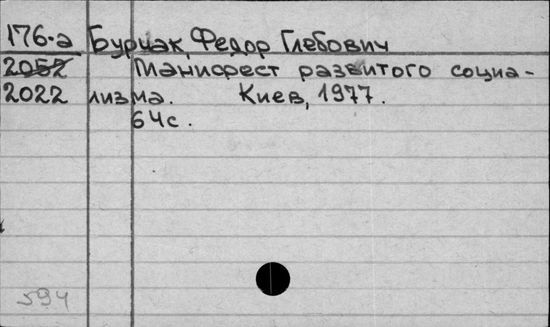 176-а Бурчак, Федор Глебович
2052 Манифест развитого социа-
2022 лизма. Киев, 1977.
64с.
594